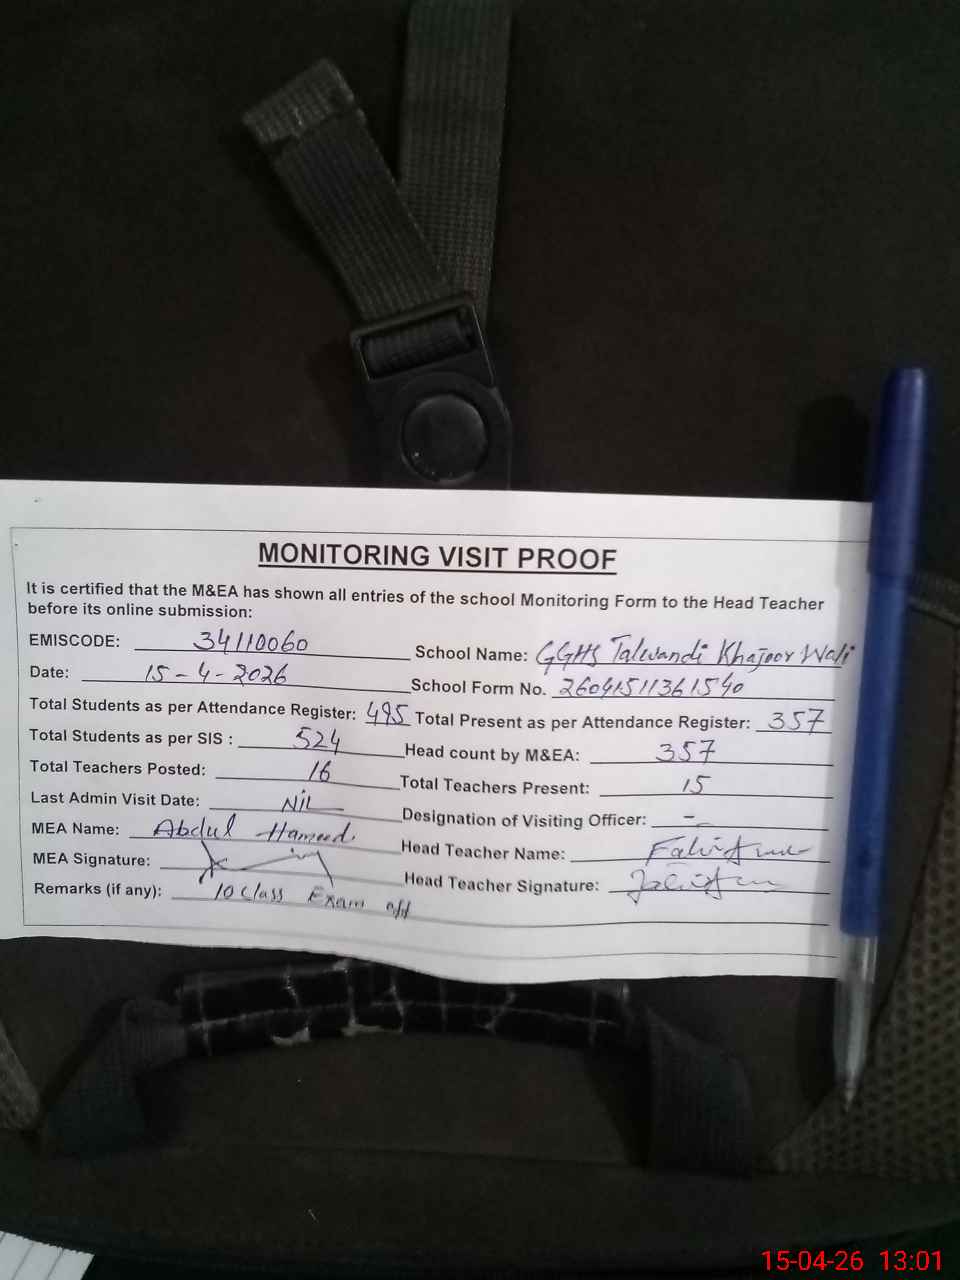 MONITORING VISIT PROOF
It is certified that the M&EA has shown all entries of the school Monitoring Form to the Head Teacher
before its online submission:
EMISCODE: 34110060 School Name: GGHS Talwandi Khajoor Wali
Date: 15-4-2026 School Form No. 26041511361540
Total Students as per Attendance Register: 495 Total Present as per Attendance Register: 357
Total Students as per SIS : 524 Head count by M&EA: 357
Total Teachers Posted: 16 Total Teachers Present: 15
Last Admin Visit Date: NiL Designation of Visiting Officer: -
MEA Name: Abdul Hameed Head Teacher Name:
MEA Signature: Head Teacher Signature:
Remarks (if any): 10 class Exam off
15-04-26 13:01